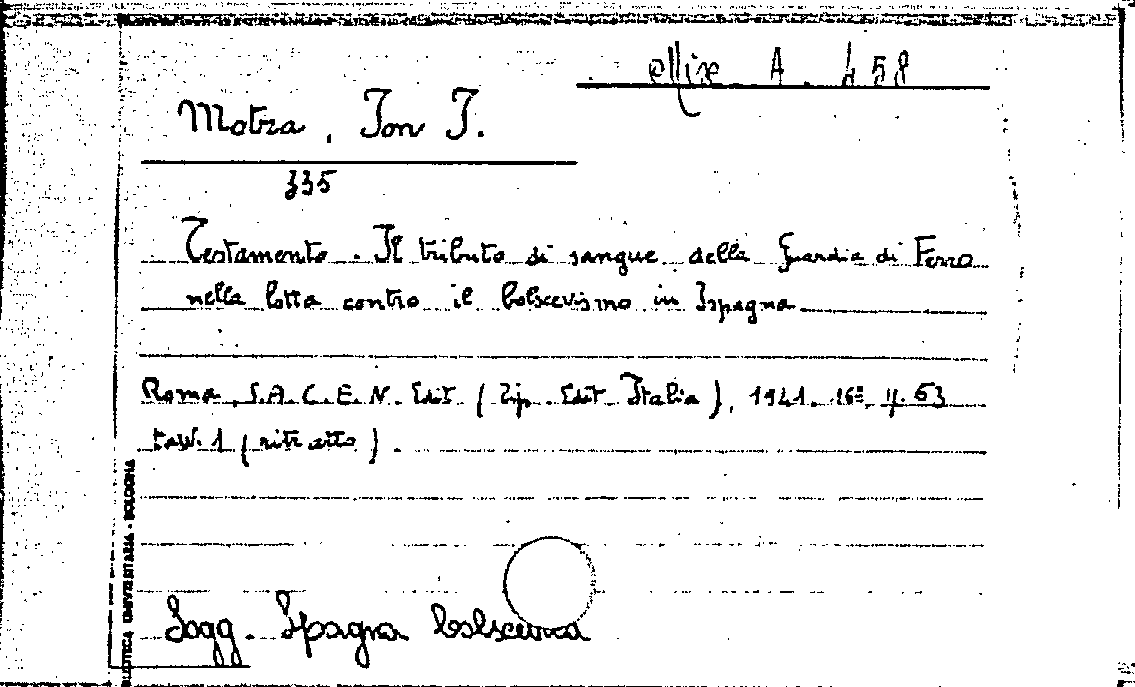 Misc A. 458
Motza, Ion I.
335
Testamento. Il tributo di sangue della Guardia di Ferro
nella lotta contro il bolscevismo in Ispagna
Roma, S.A.C.E.N. Edit. (Tip. Edit. Italia), 1941. 16º, p. 63
tav. 1 (ritratto).
Sogg. Spagna bolscevica
BIBLIOTECA UNIVERSITARIA - BOLOGNA